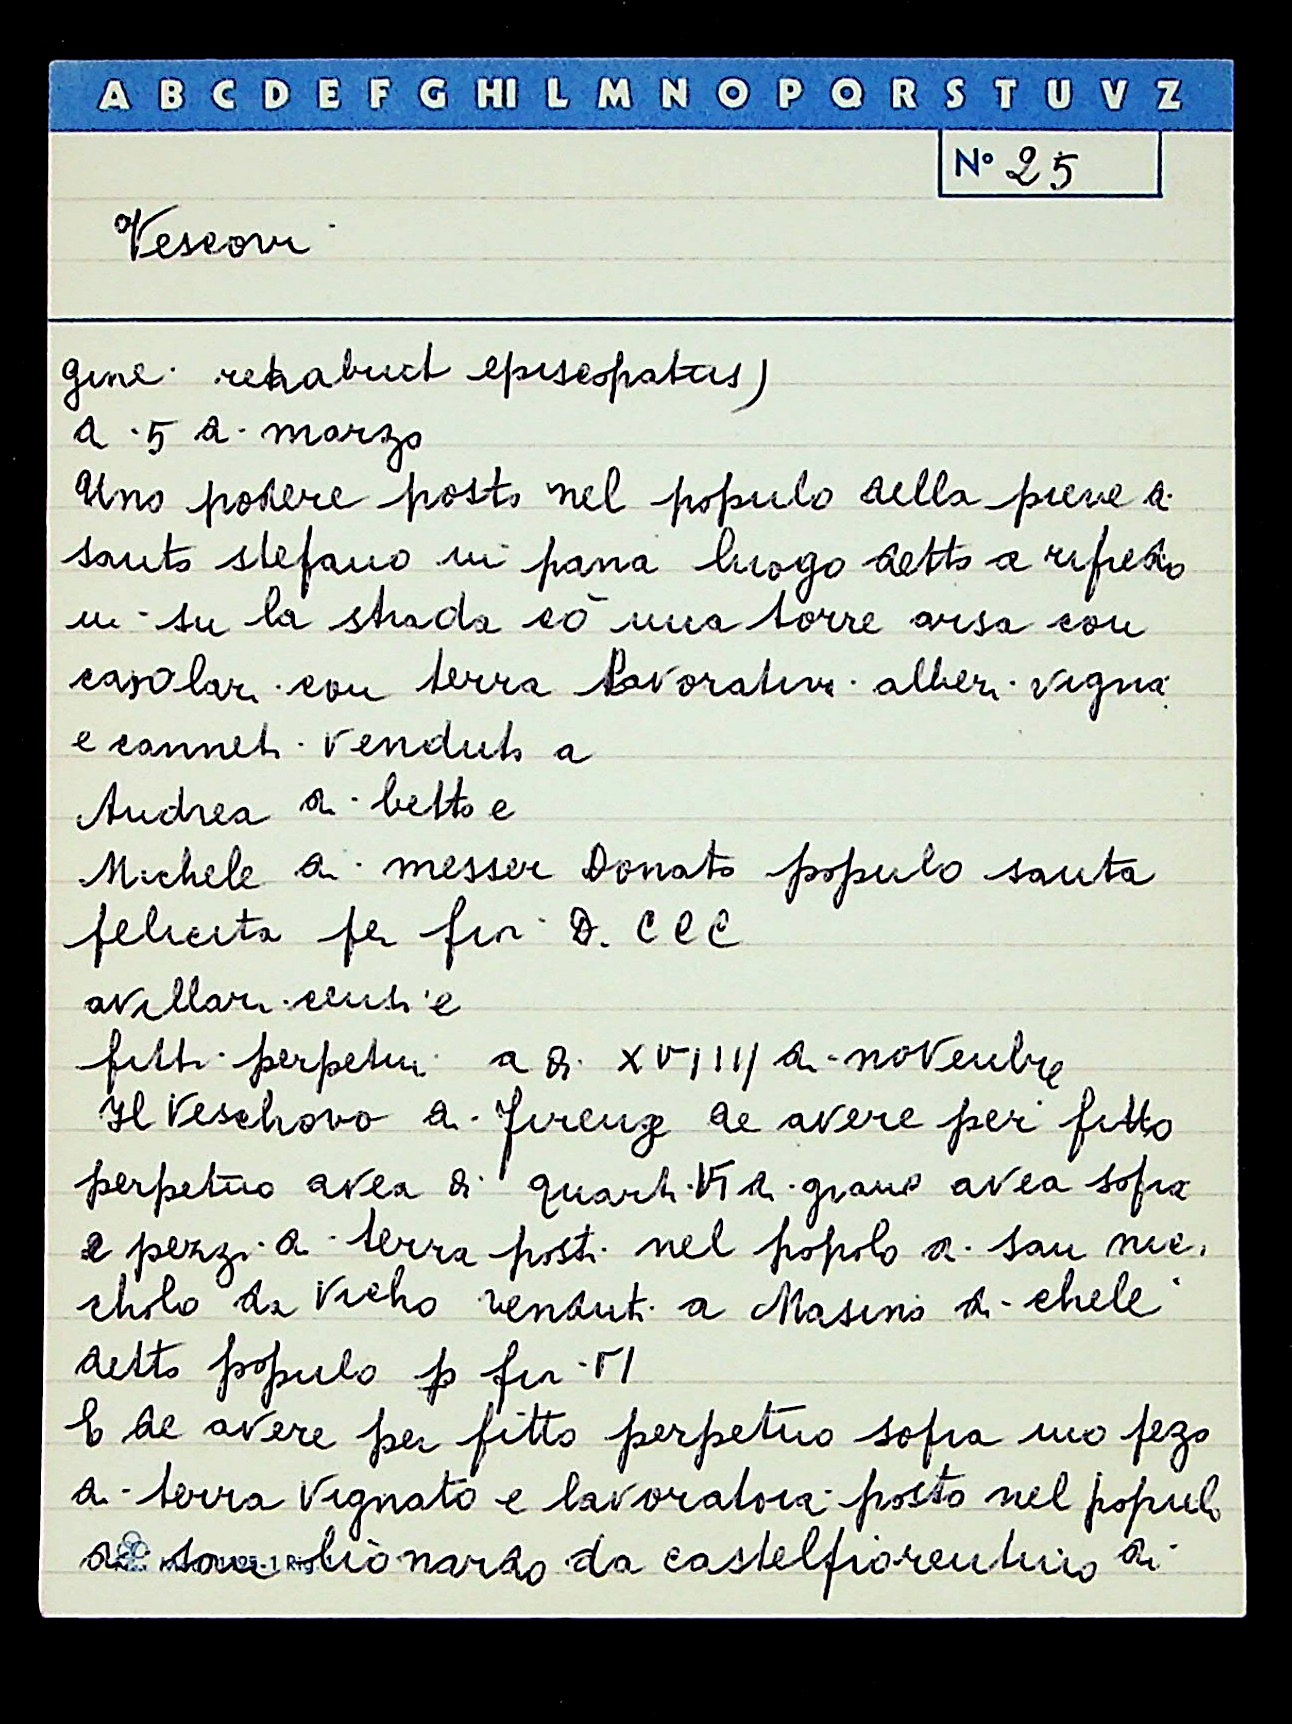 A B C D E F G HI L M N O P Q R S T U V Z
Nº 25
Vescovi
gine rehabuit episcopatus)
a 5 di marzo
Uno podere posto nel populo della pieve di
santo stefano in pana luogo detto a rifredo
in su la strada cō una torre arsa con
casolari con terra lavorativi alberi vigna
e canneti venduto a
Andrea di betto e
Michele di messer Donato populo santa
felicita per fior D. CCC
avillari censi e
fitti perpetui a di XVIIII di novenbre
Il Veschovo di Firenze de avere per fitto
perpetuo avea di quarti VI di grano avea sopra
2 pezzi di terra posti nel popolo di san nic
cholo da Vicho venduti a Masino di chele
detto populo p fior VI
E de avere per fitto perpetuo sopra uno pezo
di terra vignato e lavoratoia posto nel populo
di san lionardo da castelfiorentino di